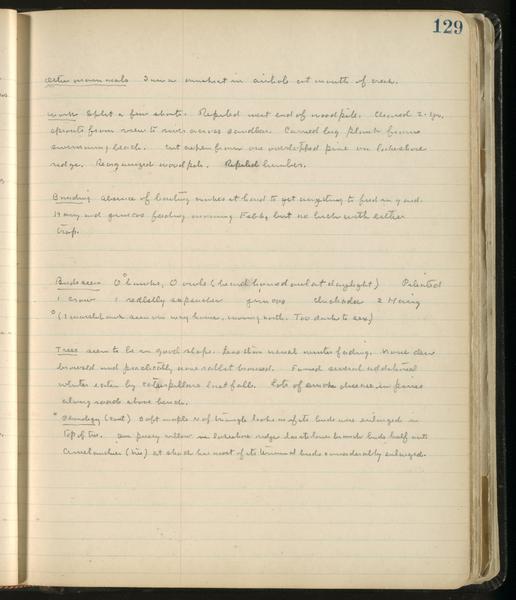 129
Other mammals Saw a muskrat in airhole at mouth of creek.
Work Split a few shorts. Repiled west end of woodpile. Cleared 2-yr.
sprouts from view to river across sandbar. Carried big plank from
swimming beach. Cut aspen from one overtopped pine on lakeshore
ridge. Reorganized woodpile. Repiled lumber.
Banding absence of baiting makes it hard to get anything to feed in yard.
Hairy and juncos feeding morning Feb 6, but no luck with either
trap.
Birds seen 0° hawks, 0 owls (heard horned owl at daylight) Pileated
1 crow 1 redbelly sapsucker juncos chickadee 2 Hairy
° (1 marsh hawk seen on way home, moving north. Too dark to sex)
Trees seem to be in good shape. Less than usual winter fading. None deer
browsed and practically none rabbit browsed. Found several additional
whites eaten by caterpillars last fall. Lots of smoke disease in pines
along road above bench.
* Phenology (cont) Soft maple N of triangle looks as if its buds were enlarged in
top of tree. One pussy willow on lakeshore ridge has its lower branch buds half out.
Amelanchier (tree) at shack has most of its terminal buds considerably enlarged.